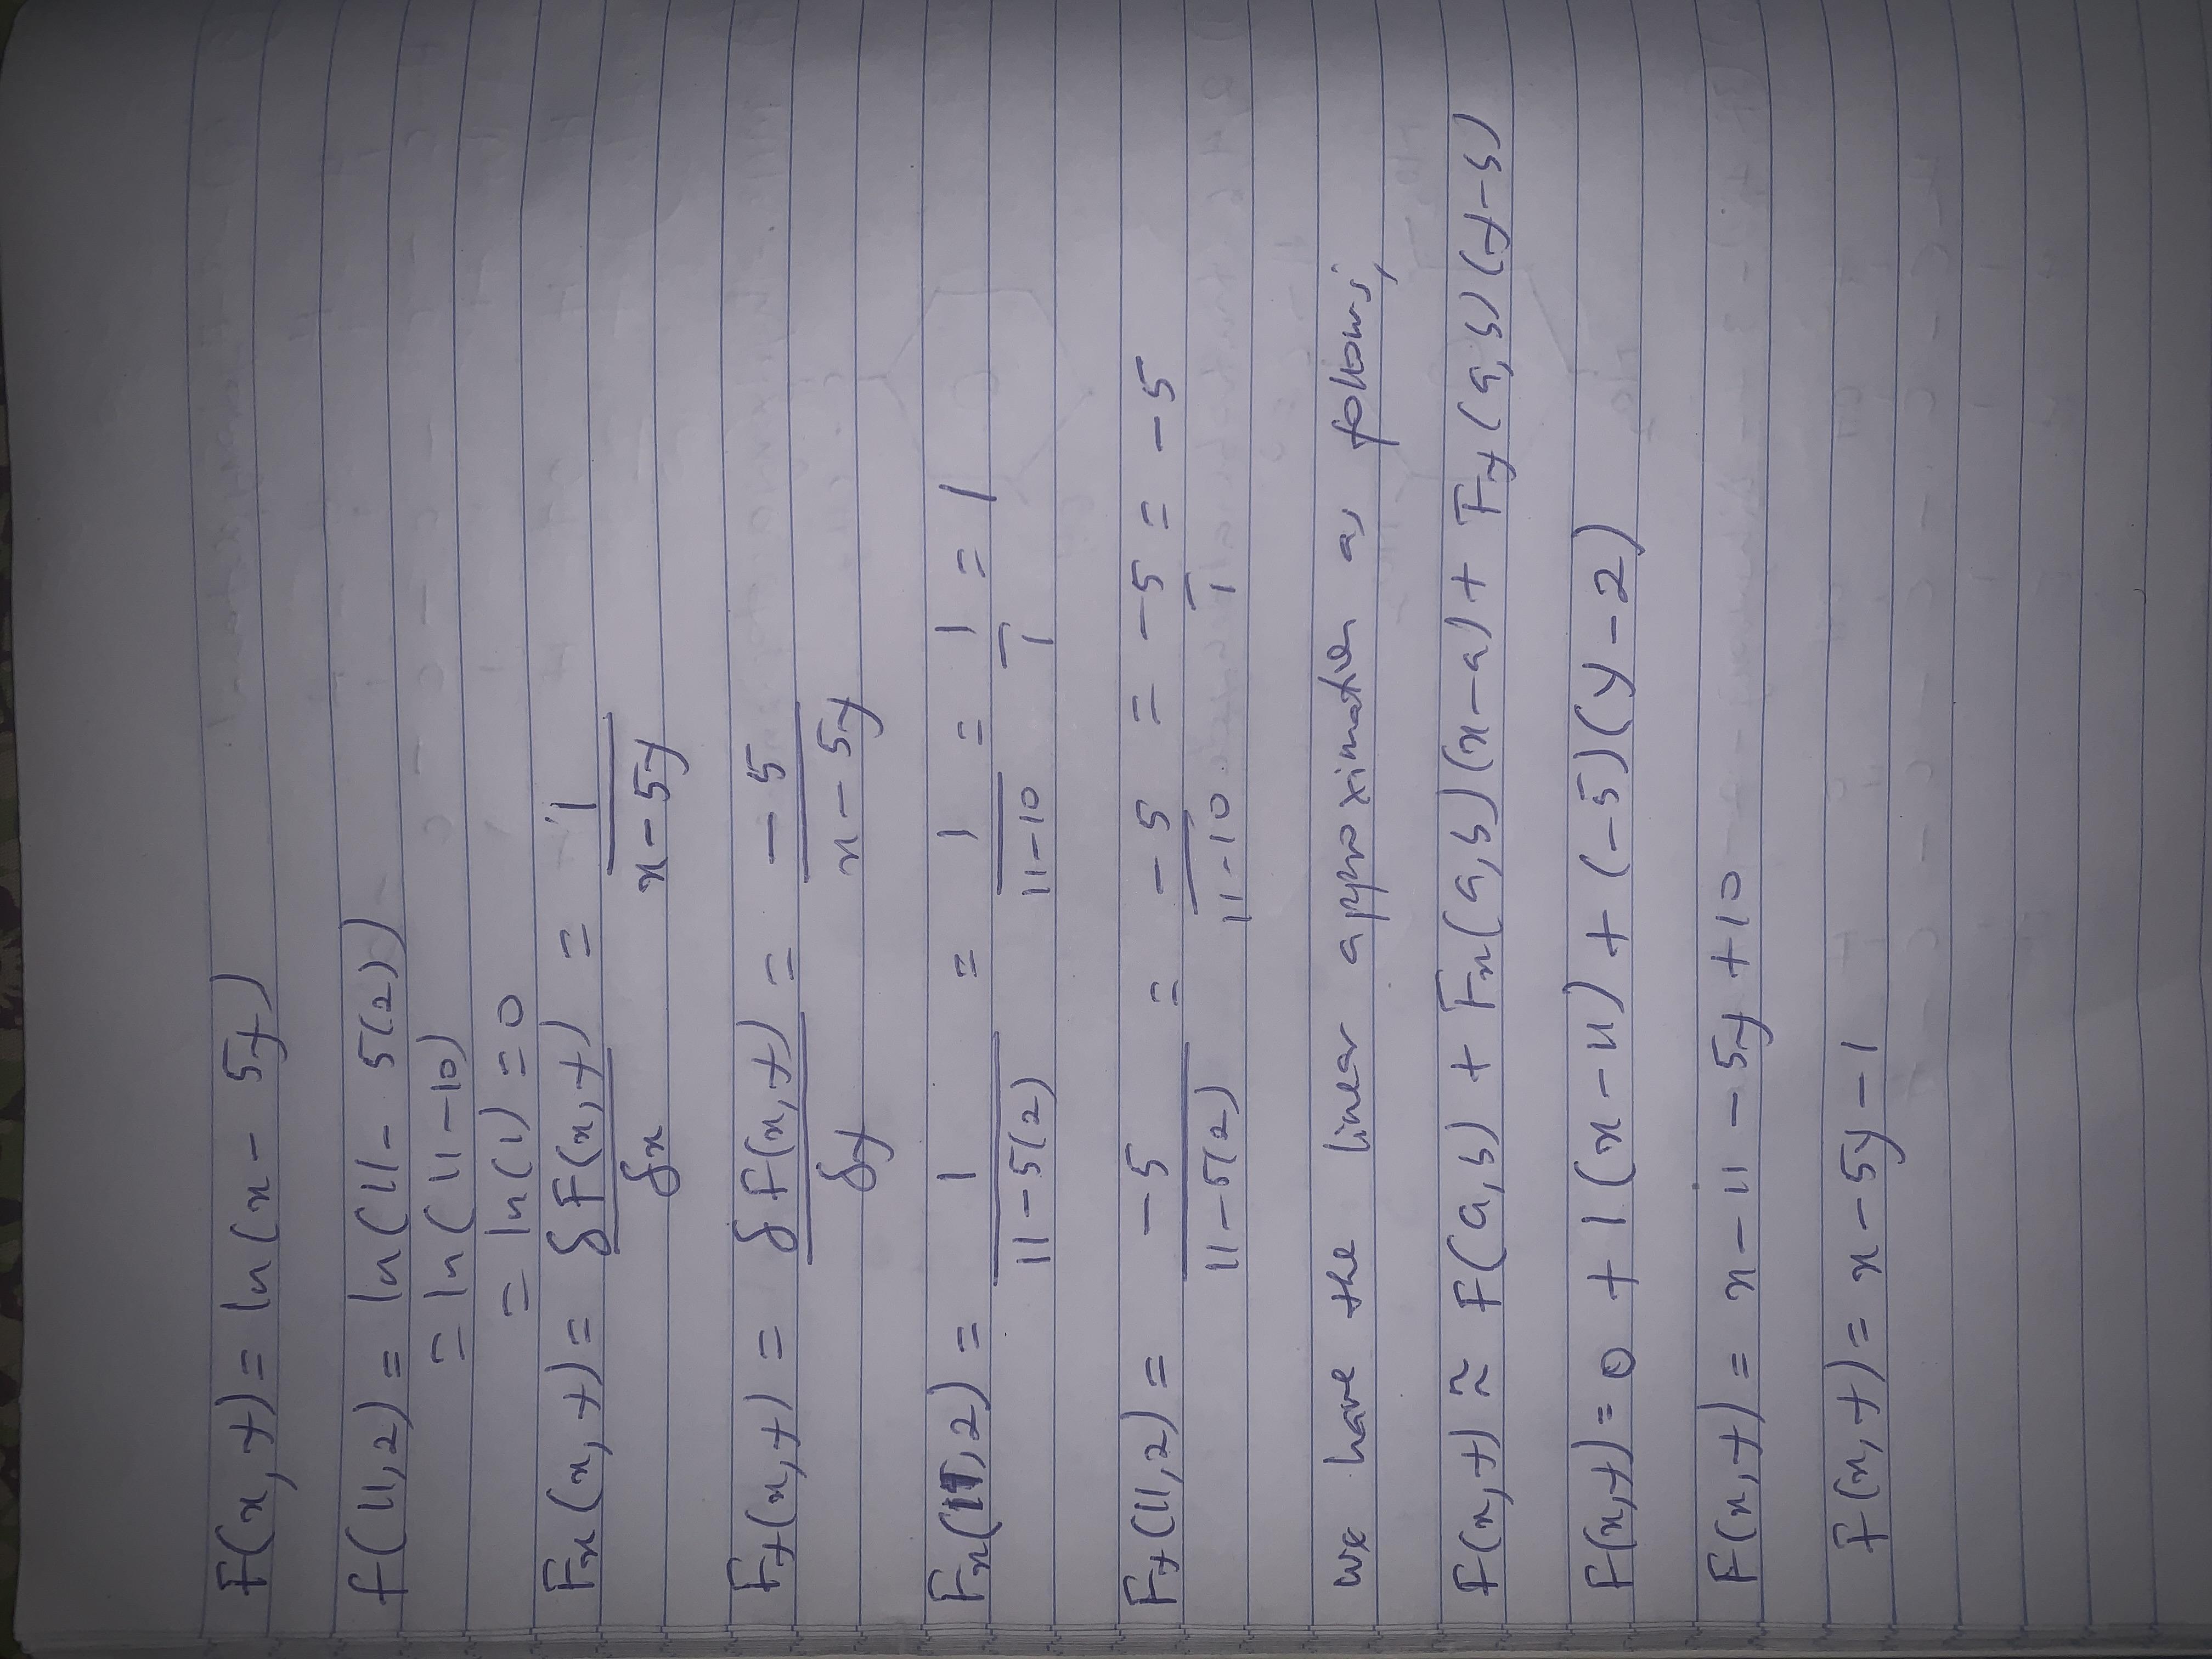 F(x,y) = ln(x - 5y)
f(11,2) = ln(11 - 5(2))
= ln(11-10)
= ln(1) = 0
Fx(x,y) = δF(x,y)/δx = 1/x-5y
Fy(x,y) = δF(x,y)/δy = -5/x-5y
Fx(11,2) = 1/11-5(2) = 1/11-10 = 1/1 = 1
Fy(11,2) = -5/11-5(2) = -5/11-10 = -5/1 = -5
we have the linear approximation as follows,
F(x,y) ≈ F(a,b) + Fx(a,b)(x-a) + Fy(a,b)(y-b)
F(x,y) = 0 + 1(x-11) + (-5)(y-2)
F(x,y) = x - 11 - 5y + 10
F(x,y) = x - 5y - 1